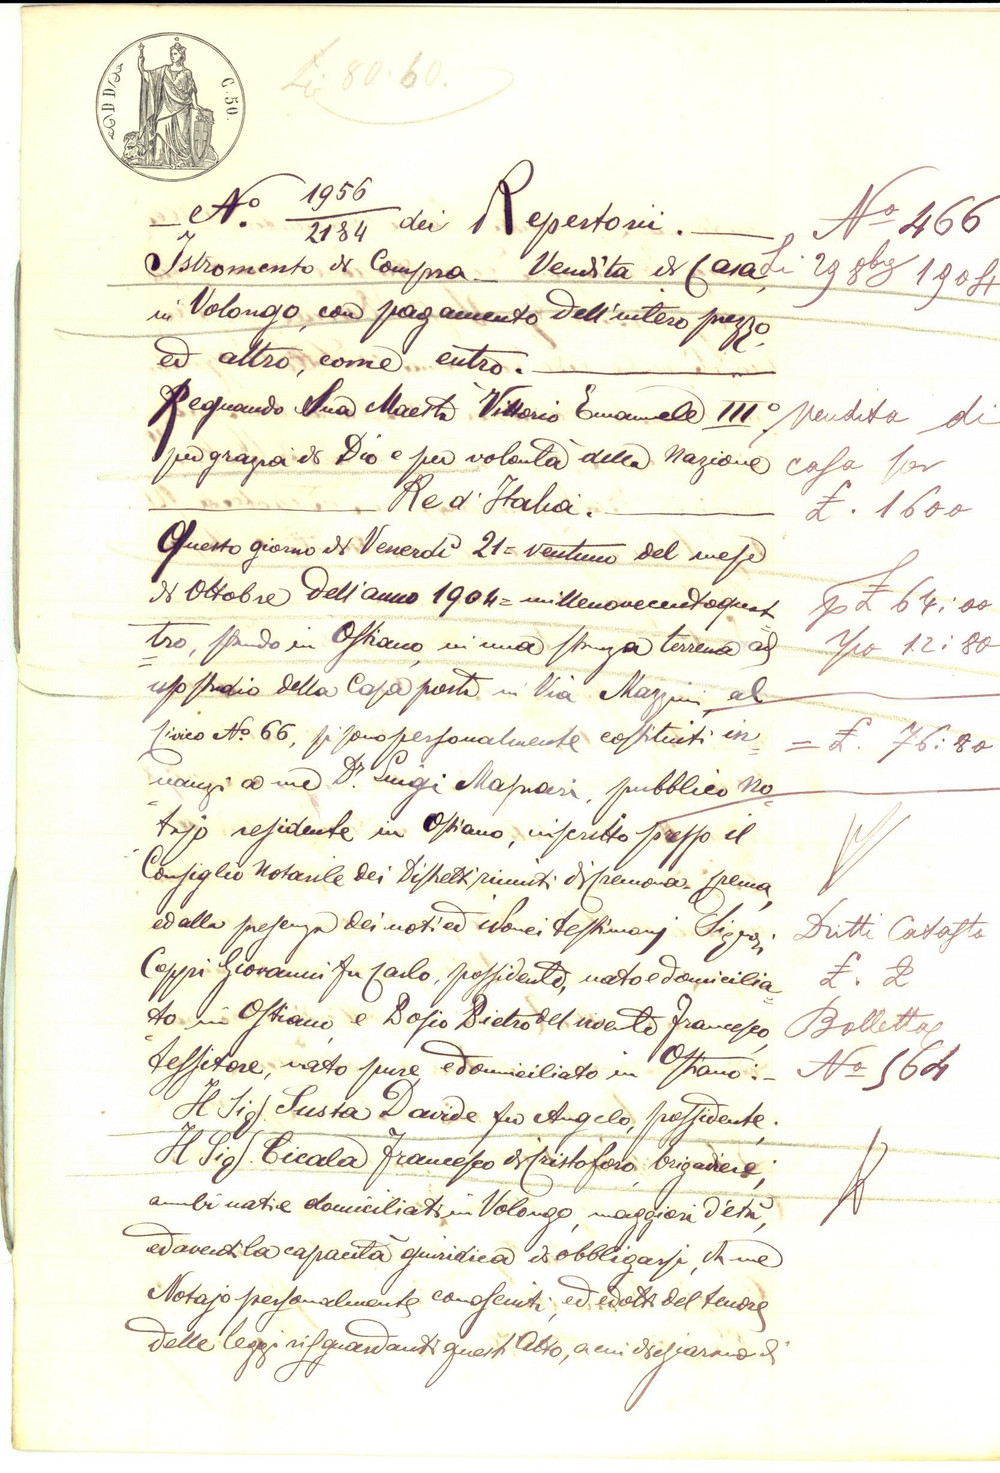 C. 50.
L. 80.60.
N.º 1956/2184 dei Repertorii.
Istromento di Compra Vendita di Casa,
in Volongo, con pagamento dell'intero prezzo
ed altro, come entro.
Regnando Sua Maestà Vittorio Emanuele IIIº
per grazia di Dio e per volontà della Nazione
Re d'Italia.
Questo giorno di Venerdì 21= ventuno del mese
di Ottobre dell'anno 1904= millenovecentoquat=
tro, stando in Ostiano, in una stanza terrena ad
uso studio della Casa posta in Via Mazzini, al
civico Nº 66, si sono personalmente costituiti in=
nanzi a me Dr. Luigi, pubblico No=
tajo residente in Ostiano, inscritto presso il
Consiglio Notarile dei Distretti riuniti di Cremona
ed alla presenza dei noti ed idonei testimonj Signori
Coppi Giovanni fu Carlo, possidente, nato e domicilia=
to in Ostiano, e Bosio Pietro del vivente Francesco,
tessitore, nato pure e domiciliato in Ostiano.=
Il Sig. Susta Davide fu Angelo, possidente;
Il Sig. Cicala Francesco di Cristoforo, brigadiere;
ambi nati e domiciliati in Volongo, maggiori d'età,
ed aventi la capacità giuridica di obbligarsi, da me
Notajo personalmente conosciuti, ed edotti del tenore
delle leggi risguardanti questo Atto, a cui dichiarano di
Nº 466
Li 29 8bre 1904
Vendita di
casa per
£. 1600
£ 64:00
12:80
= £. 76:80
Dritti Catasto
£. 2
Bolletta
Nº 564